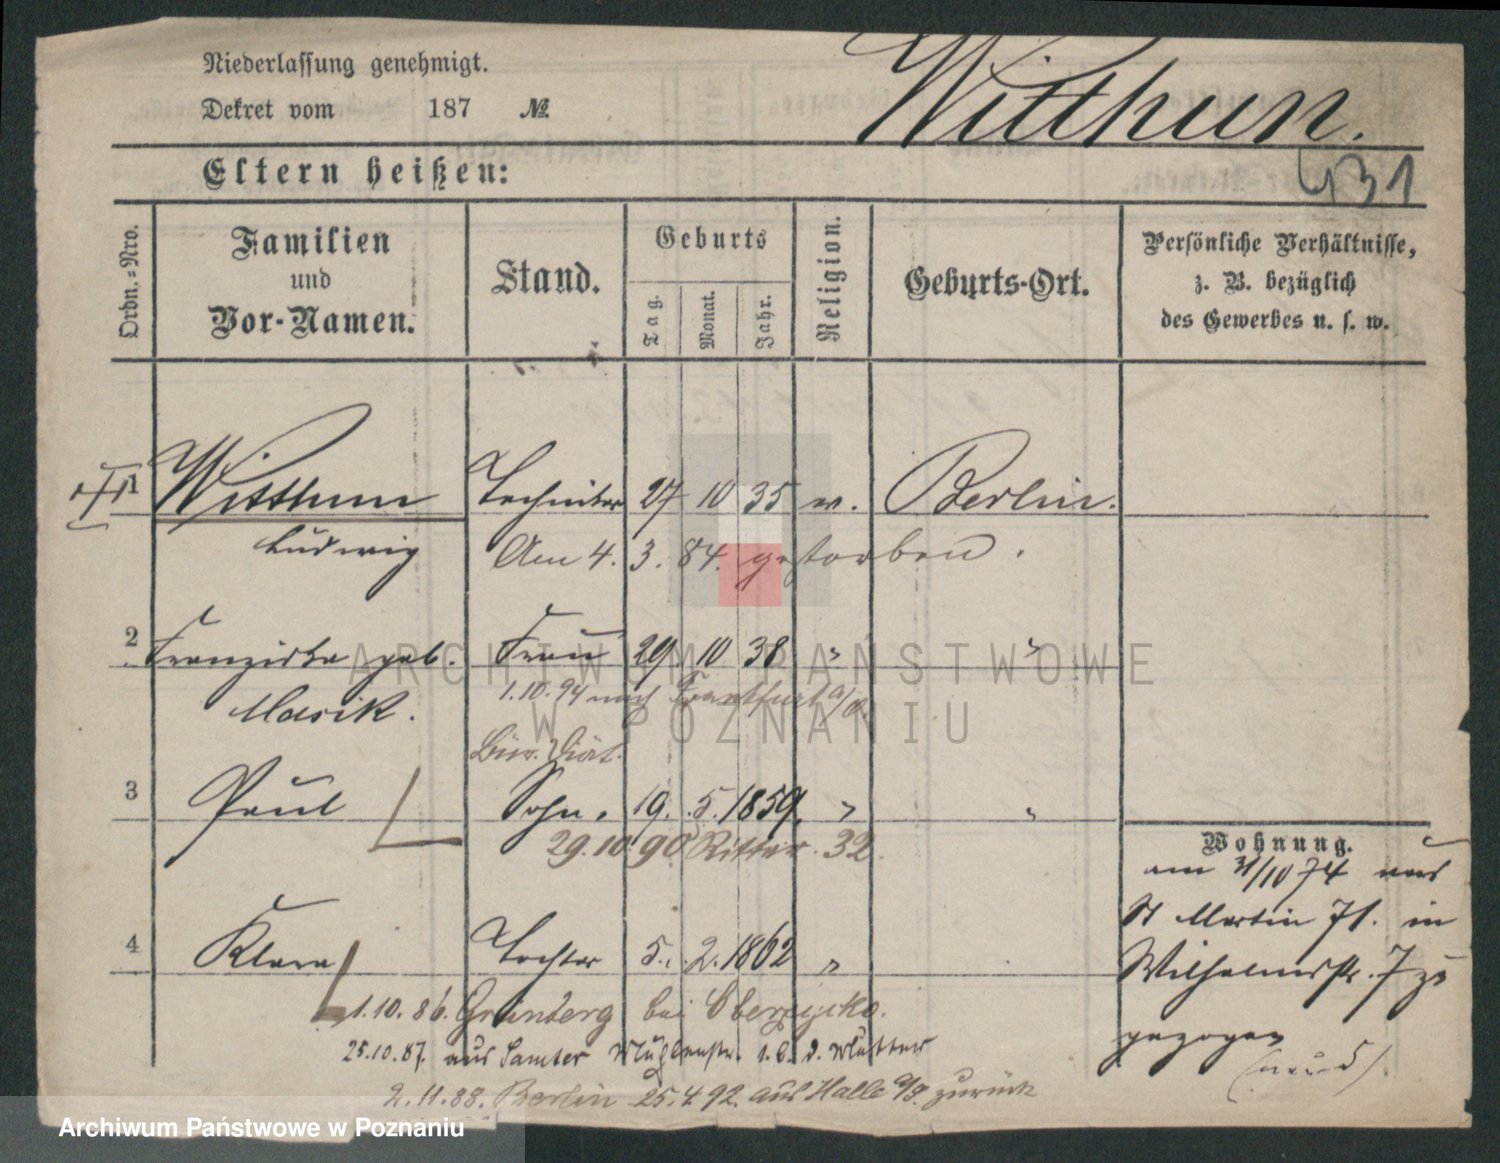 Niederlassung genehmigt.
Dekret vom 187 №
Witthun.
431
Eltern heißen:
Ordn.-Nro.
Familien
und
Vor-Namen.
Stand.
Geburts
Tag.
Monat.
Jahr.
Religion.
Geburts-Ort.
Persönliche Verhältnisse,
z. B. bezüglich
des Gewerbes u. s. w.
1 Witthun Techniker 27 10 35 ev. Berlin.
Ludwig Am 4. 3. 84. gestorben.
2 Franziska geb. Frau 29 10 38 " "
Masik. 1.10.94 nach Frankfurt a/O
ARCHIWUM PAŃSTWOWE
W POZNANIU
Bür. Diät.
3 Paul Sohn. 19. 5. 1859. " "
29.10.90 Ritter. 32.
4 Klara Tochter 5. 2. 1862 "
1.10.86. Grünberg bei Obersycko.
25.10.87. aus Samter Mühlenstr. z. d. Mutter
2.11.88. Berlin 25.4.92. aus Halle a/S. zurück
Wohnung.
am 31/10 74 von
St Martin 71. in
Wilhelmstr. 7
gezogen
Archiwum Państwowe w Poznaniu